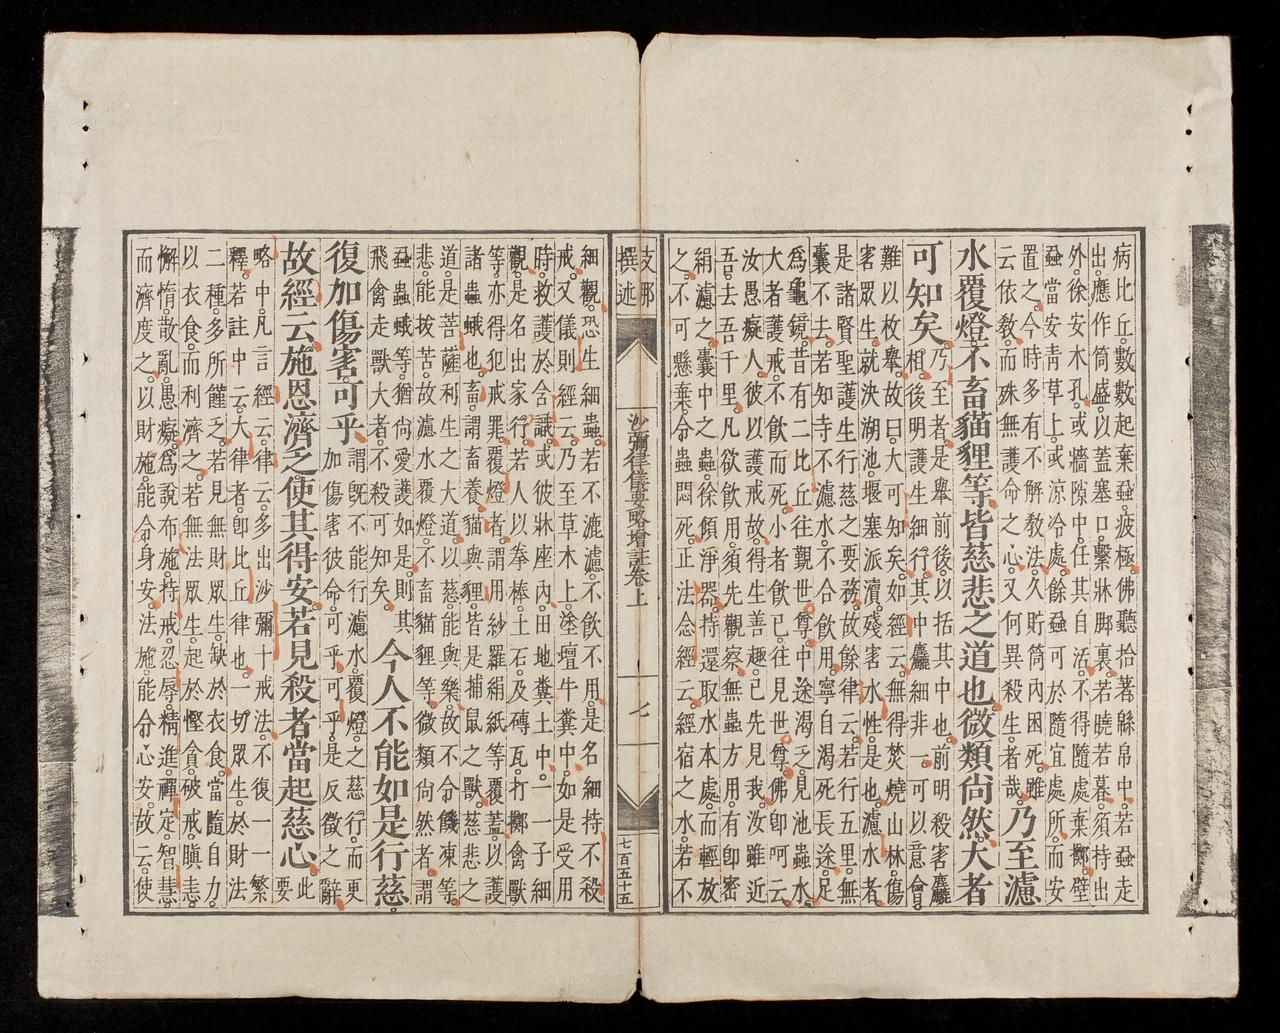 病比丘數數起棄蝨疲極佛聽拾著緜帛中若蝨走
出應作筒盛以蓋塞口繫牀脚裏若曉若暮須持出
外徐安木孔或牆隙中任其自活不得隨處棄擲壁
蝨當安青草上或涼冷處餘蝨可於隨宜處所而安
置之今時多有不解敎法久貯筒內困死雖
云依敎而殊無護命之心又何異殺生者哉乃至濾
水覆燈不畜貓貍等皆慈悲之道也微類尙然大者
可知矣乃至者是舉前後以括其中也前明殺害麤
相後明護生細行其中麤細非一可以意會
難以枚舉故曰大可知矣如經云無得焚燒山林傷
害眾生就決湖池堰塞派瀆殘害水性是也濾水者
是諸賢聖護生行慈之要務故餘律云若行五里無
囊不去若知寺不濾水不合飮用寧自渴死長途足
爲龜鏡昔有二比丘往觀世尊中途渴乏見池蟲水
大者護戒不飮而死小者飮已往見世尊佛卽呵云
汝愚癡人彼以護戒故得生善趣已先見我汝雖近
吾去吾千里凡欲飮用須先觀察無蟲方用有卽密
絹濾之囊中之蟲徐傾淨器持還取水本處而輕放
之不可懸棄令蟲悶死正法念經云經宿之水若不
支那撰述
沙彌律儀要略增註卷上
七百五十五
細觀恐生細蟲若不漉濾不飮不用是名細持不殺
戒又儀則經云乃至草木上塗壇牛糞中如是受用
時救護於含識或彼牀座內田地糞土中一一子細
觀是名出家行若人以拳棒土石及磚瓦打擲禽獸
等亦得犯戒罪覆燈者謂用紗羅絹紙等覆蓋以護
諸蟲蛾也畜謂畜養貓與貍皆是捕鼠之獸慈悲之
道是菩薩利生之大道以慈能與樂故不令饑凍等
悲能拔苦故濾水覆燈不畜貓貍等微類尙然者謂
蝨蟲蛾等猶尙愛護如是則其
飛禽走獸大者不殺可知矣今人不能如是行慈
復加傷害可乎謂旣不能行濾水覆燈之慈行而更
加傷害彼命可乎可乎是反徵之辭
故經云施恩濟乏使其得安若見殺者當起慈心此
要
略中凡言經云律云多出沙彌十戒法不復一一繁
釋若註中云大律者卽比丘律也一切眾生於財法
二種多所饉乏若見無財眾生缺於衣食當隨自力
以衣食而利濟之若無法眾生起於慳貪破戒瞋恚
懈惰散亂愚癡爲說布施持戒忍辱精進禪定智慧
而濟度之以財施能令身安法施能令心安故云使